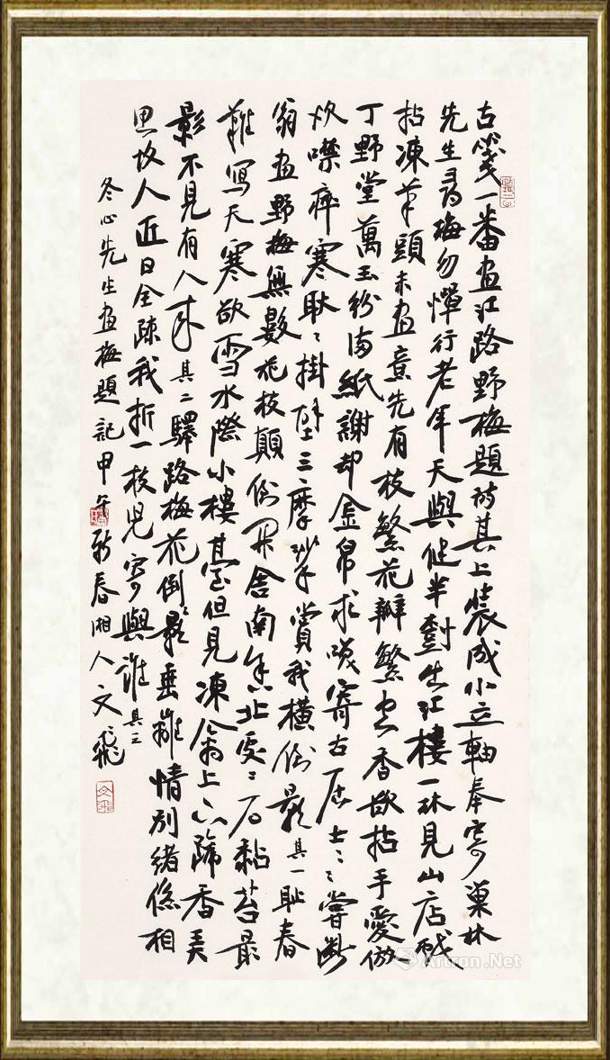 古箋一番画江路野梅題詩其上裝成小立軸奉寄巢林
先生尋梅勿憚行老年天與健半樹出江樓一林見山店戲
拈凍筆頭未画意先有枝繁花瓣繁空香欲拈手愛倣
丁野堂萬玉紛满紙謝却金帛求 寄古居士〻〻嘗斷
炊噤瘁寒耿〻掛壁三摩挲賞我橫倒影其一耻春
翁画野梅無數花枝顛倒開舍南舍北處〻石黏苔最
難寫天寒欲雪水際小樓 但見凍禽上下啼香弄
影不見有人來其二驛路梅花倒影垂離情別緒係相
思故人近日全疎我折一枝兒寄與誰其三
冬心先生画梅題記甲午新春湘人文飛
Artron.Net